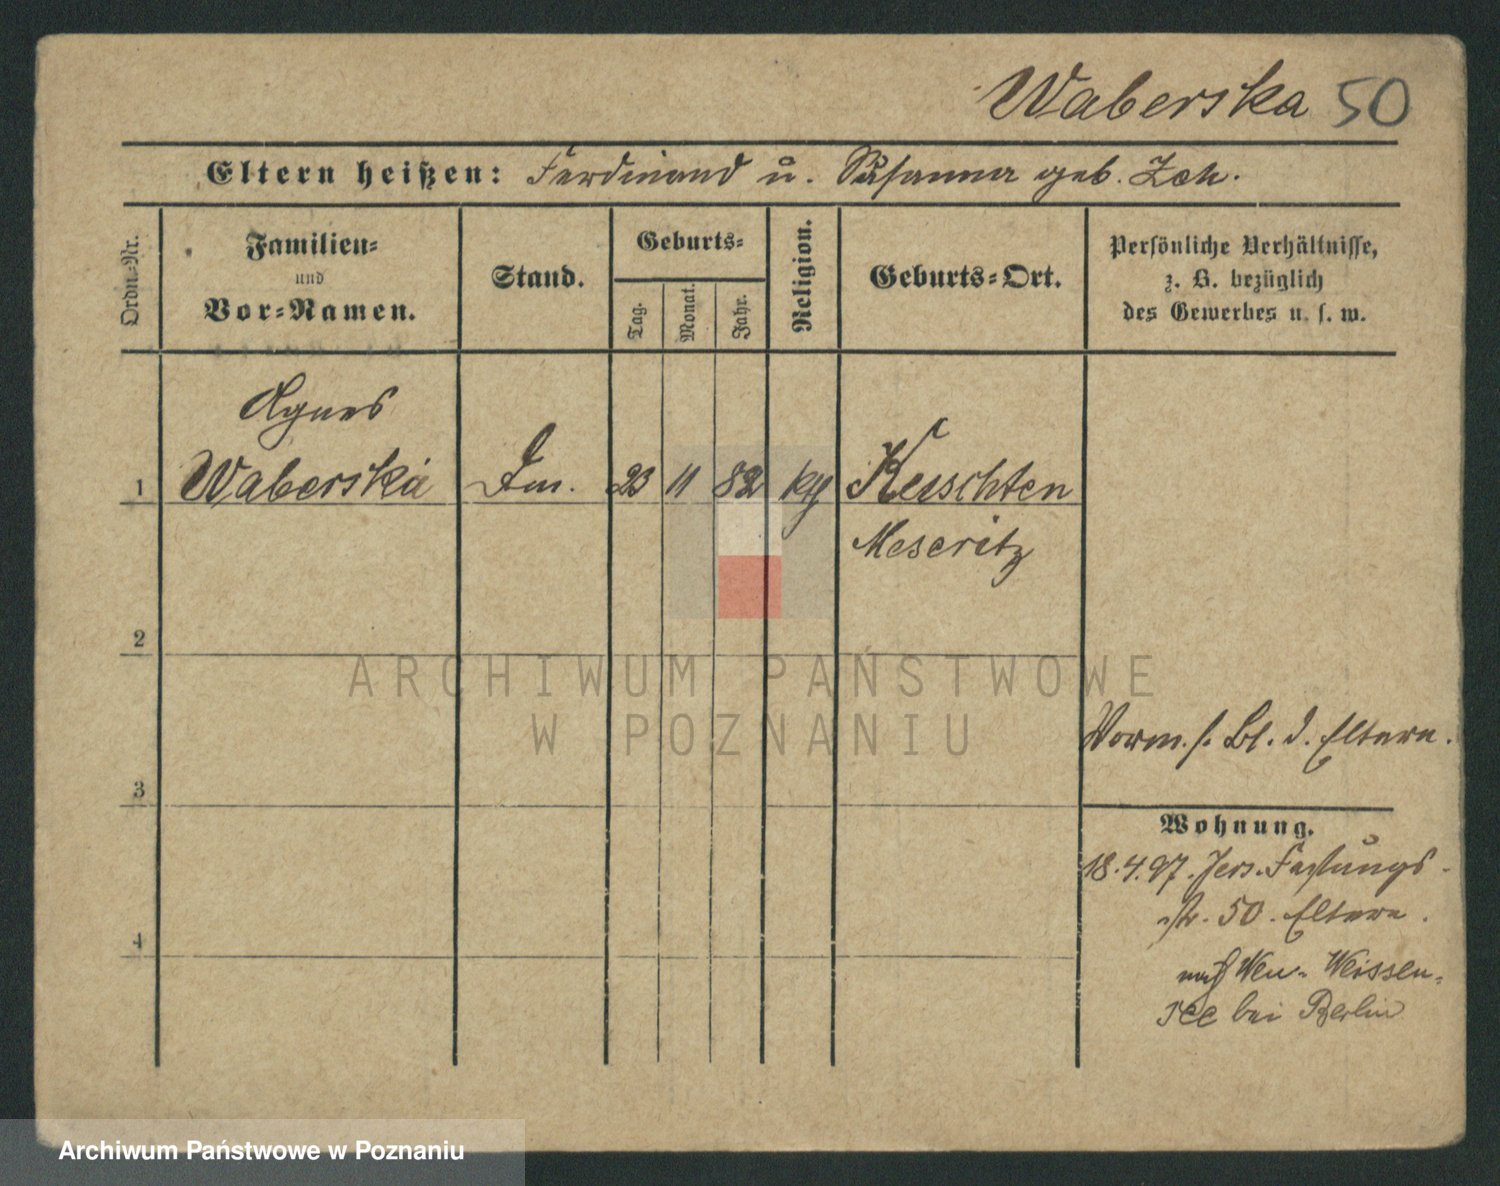 Waberska 50
Eltern heißen: Ferdinand u. Susanna geb. Zeh.
Ordn.-Nr.
Familien-
und
Vor-Namen.
Stand.
Geburts-
Tag.
Monat.
Jahr.
Religion.
Geburts-Ort.
Persönliche Verhältnisse,
z. B. bezüglich
des Gewerbes u. s. w.
Agnes
1 Waberska 23 11 82 kth Keuschten
Meseritz
2
Vorm. s. Bl. d. Eltern.
3
Wohnung.
18.4.97. Jers. Festungs-
str. 50. Eltern.
4
nach Neu-Weissen-
see bei Berlin
ARCHIWUM PAŃSTWOWE
W POZNANIU
Archiwum Państwowe w Poznaniu